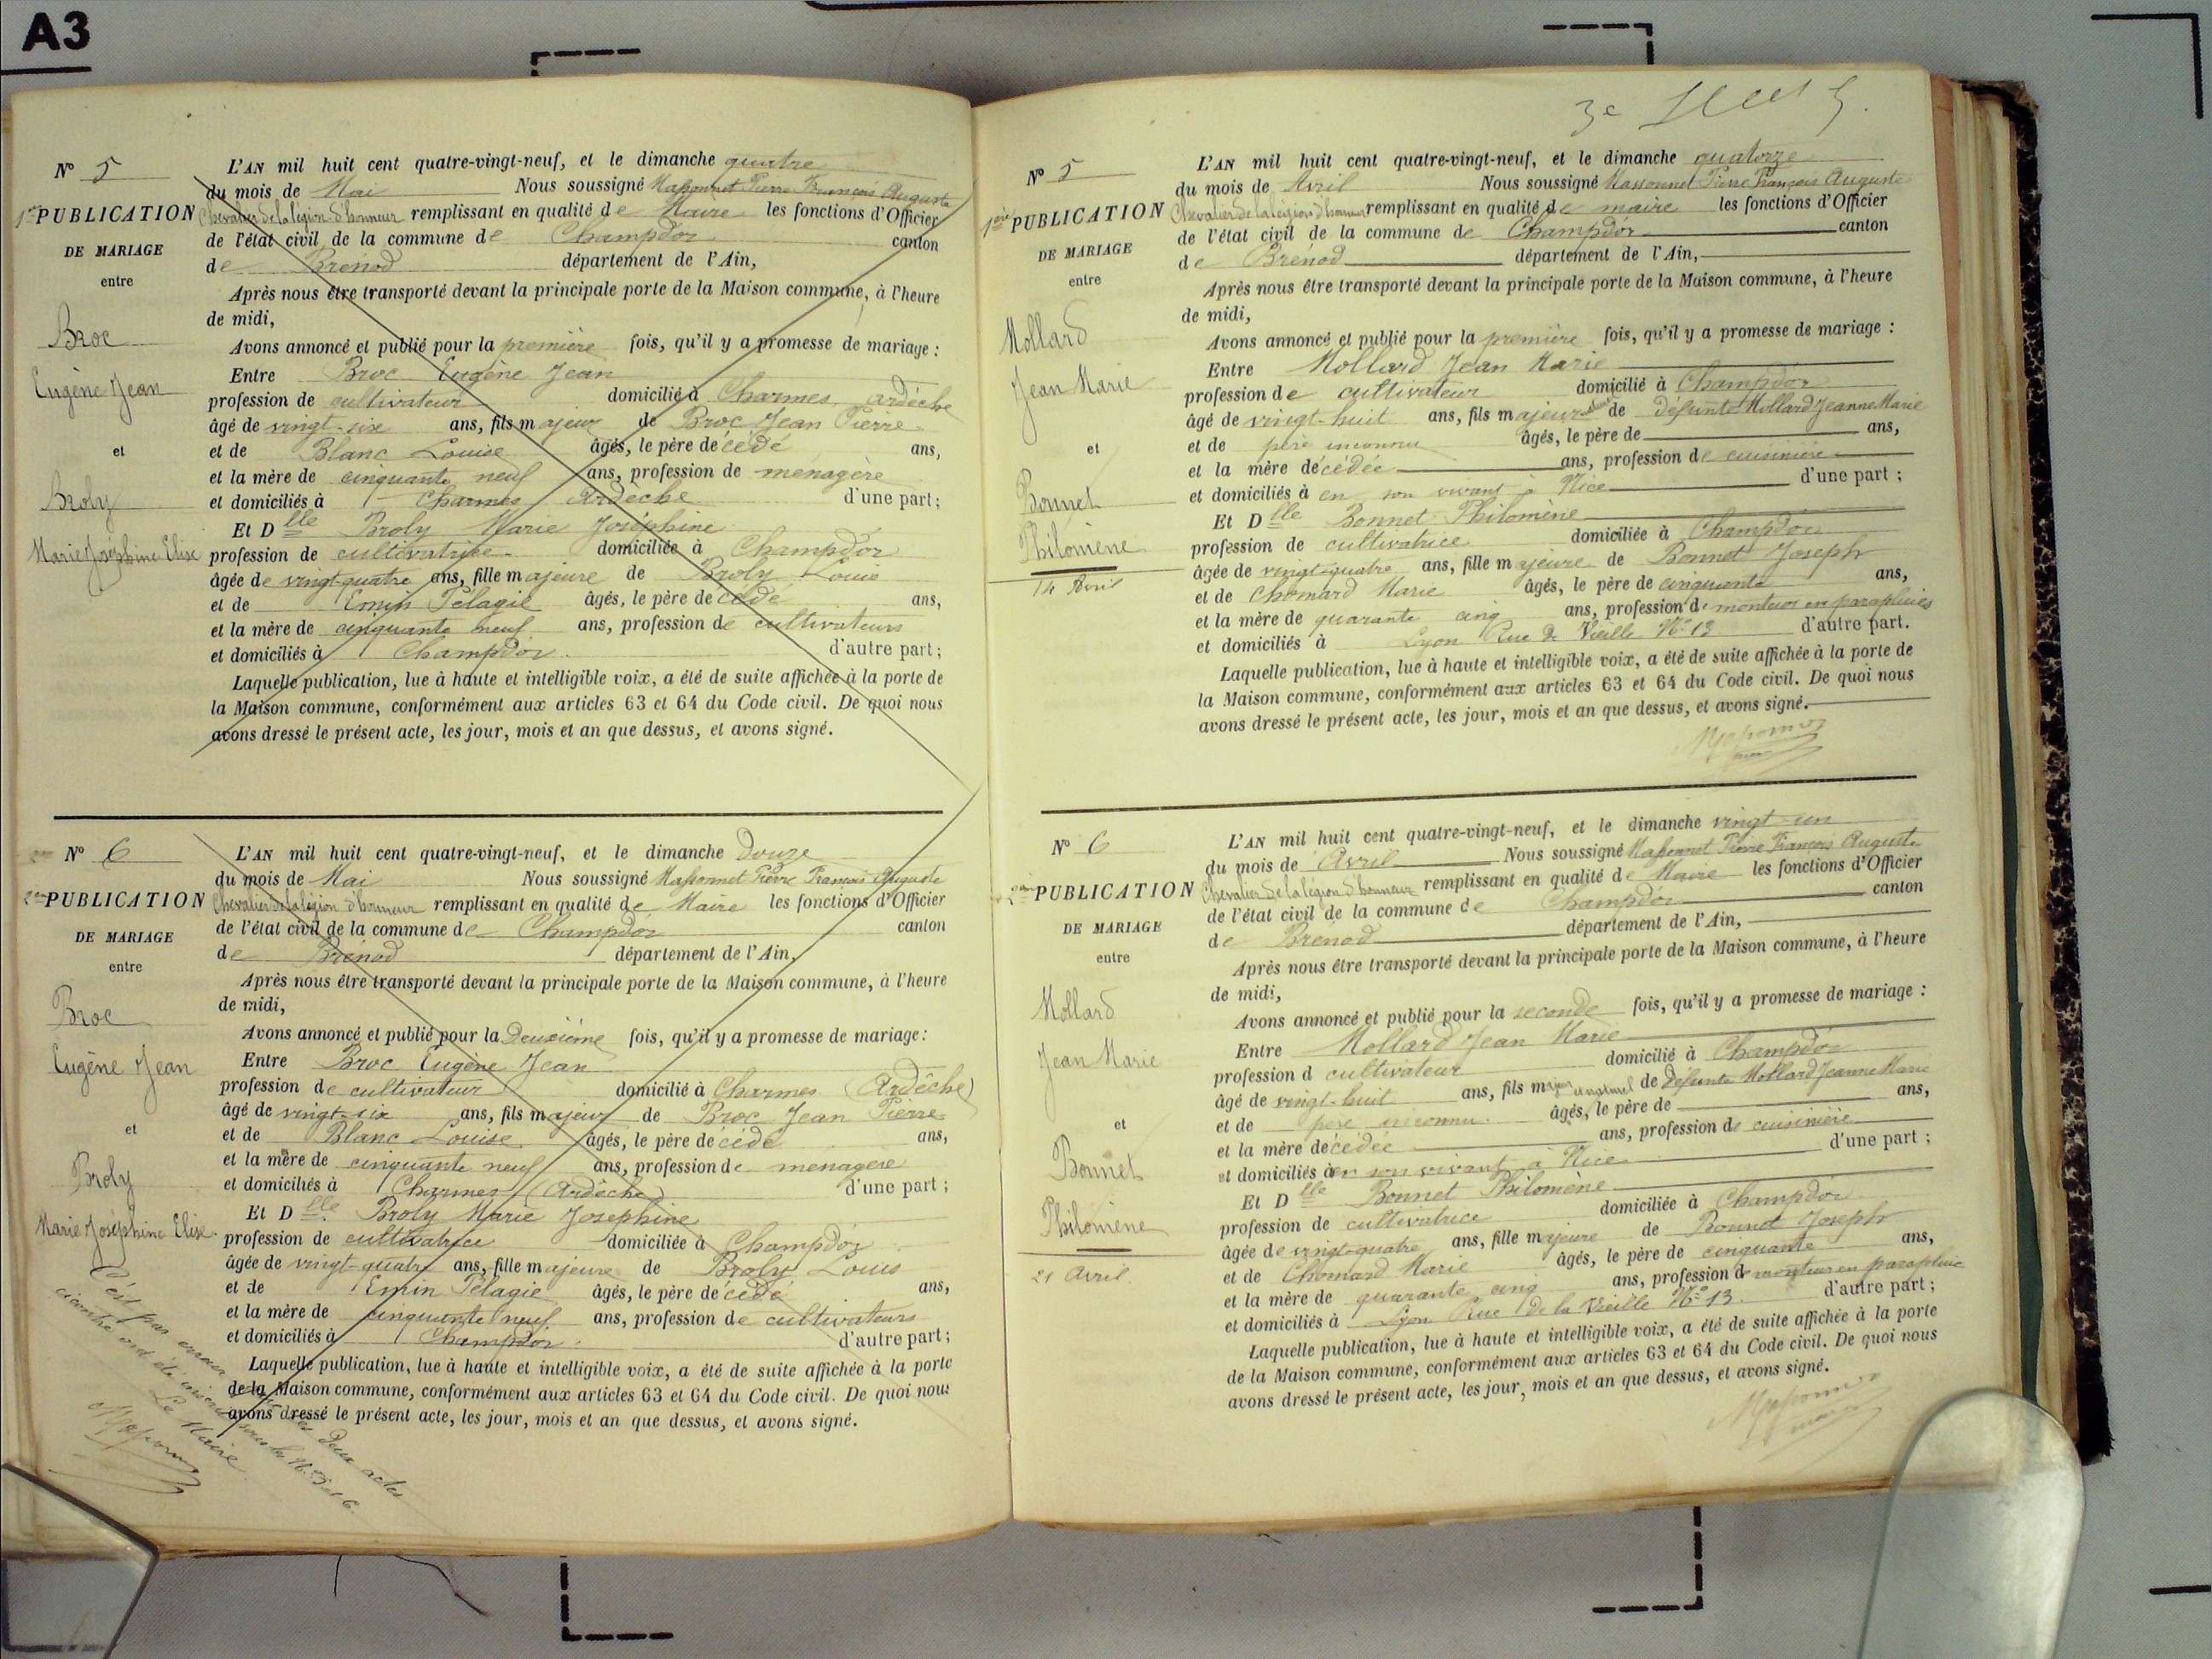 A3
N° 5
1ère PUBLICATION
DE MARIAGE
entre
Broc
Eugène Jean
et
Broly
Marie Joséphine Elise
L'AN mil huit cent quatre-vingt-neuf, et le dimanche quatre
du mois de Mai Nous soussigné Massonnet Pierre François Auguste
Chevalier de la légion d'honneur remplissant en qualité de Maire les fonctions d'Officier
de l'état civil de la commune de Champdor canton
de Brénod département de l'Ain,
Après nous être transporté devant la principale porte de la Maison commune, à l'heure
de midi,
Avons annoncé et publié pour la première fois, qu'il y a promesse de mariage :
Entre Broc Eugène Jean
profession de cultivateur domicilié à Charmes Ardèche
âgé de vingt-six ans, fils majeur de Broc Jean Pierre
et de Blanc Louise âgés, le père décédé ans,
et la mère de cinquante neuf ans, profession de menagère
et domiciliés à Charmes Ardèche d'une part;
Et Dlle Broly Marie Joséphine
profession de cultivatrice domiciliée à Champdor
âgée de vingt-quatre ans, fille majeure de Broly Louis
et de Emin Pélagie âgés, le père décédé ans,
et la mère de cinquante neuf ans, profession de cultivateurs
et domiciliés à Champdor d'autre part;
Laquelle publication, lue à haute et intelligible voix, a été de suite affichée à la porte de
la Maison commune, conformément aux articles 63 et 64 du Code civil. De quoi nous
avons dressé le présent acte, les jour, mois et an que dessus, et avons signé.
N° 6
2ème PUBLICATION
DE MARIAGE
entre
Broc
Eugène Jean
et
Broly
Marie Joséphine Elise
L'AN mil huit cent quatre-vingt-neuf, et le dimanche douze
du mois de Mai Nous soussigné Massonnet Pierre François Auguste
Chevalier de la légion d'honneur remplissant en qualité de Maire les fonctions d'Officier
de l'état civil de la commune de Champdor canton
de Brénod département de l'Ain,
Après nous être transporté devant la principale porte de la Maison commune, à l'heure
de midi,
Avons annoncé et publié pour la Deuxième fois, qu'il y a promesse de mariage:
Entre Broc Eugène Jean
profession de cultivateur domicilié à Charmes (Ardèche)
âgé de vingt-six ans, fils majeur de Broc Jean Pierre
et de Blanc Louise âgés, le père décédé ans,
et la mère de cinquante neuf ans, profession de menagère
et domiciliés à Charmes (Ardèche) d'une part;
Et Dlle Broly Marie Josephine
profession de cultivatrice domiciliée à Champdor
âgée de vingt-quatre ans, fille majeure de Broly Louis
et de Emin Pélagie âgés, le père décédé ans,
et la mère de cinquante neuf ans, profession de cultivateurs
et domiciliés à Champdor d'autre part;
Laquelle publication, lue à haute et intelligible voix, a été de suite affichée à la porte
de la Maison commune, conformément aux articles 63 et 64 du Code civil. De quoi nous
avons dressé le présent acte, les jour, mois et an que dessus, et avons signé.
C'est par erreur que les deux actes
ci contre ont été inscrits sous les Nos 5 et 6
Le Maire
Massonnet
N° 5
1ère PUBLICATION
DE MARIAGE
entre
Mollard
Jean Marie
et
Bonnet
Philomène
14 Avril
L'AN mil huit cent quatre-vingt-neuf, et le dimanche quatorze
du mois de Avril Nous soussigné Massonnet Pierre François Auguste
Chevalier de la légion d'honneur remplissant en qualité de maire les fonctions d'Officier
de l'état civil de la commune de Champdor canton
de Brénod département de l'Ain,
Après nous être transporté devant la principale porte de la Maison commune, à l'heure
de midi,
Avons annoncé et publié pour la première fois, qu'il y a promesse de mariage :
Entre Mollard Jean Marie
profession de cultivateur domicilié à Champdor
âgé de vingt-huit ans, fils majeur naturel de défunte Mollard Jeanne Marie
et de père inconnu âgés, le père de ans,
et la mère décédée ans, profession de cuisinière
et domiciliés à en son vivant à Nice d'une part ;
Et Dlle Bonnet Philomène
profession de cultivatrice domiciliée à Champdor
âgée de vingt-quatre ans, fille majeure de Bonnet Joseph
et de Chomard Marie âgés, le père de cinquante ans,
et la mère de quarante cinq ans, profession de monteur en parapluies
et domiciliés à Lyon Rue de Vieille N° 13 d'autre part.
Laquelle publication, lue à haute et intelligible voix, a été de suite affichée à la porte de
la Maison commune, conformément aux articles 63 et 64 du Code civil. De quoi nous
avons dressé le présent acte, les jour, mois et an que dessus, et avons signé.
Massonnet
N° 6
2ème PUBLICATION
DE MARIAGE
entre
Mollard
Jean Marie
et
Bonnet
Philomène
21 Avril.
L'AN mil huit cent quatre-vingt-neuf, et le dimanche vingt-un
du mois de Avril Nous soussigné Massonnet Pierre François Auguste
Chevalier de la légion d'honneur remplissant en qualité de Maire les fonctions d'Officier
de l'état civil de la commune de Champdor canton
de Brénod département de l'Ain,
Après nous être transporté devant la principale porte de la Maison commune, à l'heure
de midi,
Avons annoncé et publié pour la seconde fois, qu'il y a promesse de mariage :
Entre Mollard Jean Marie
profession d cultivateur domicilié à Champdor
âgé de vingt-huit ans, fils majeur naturel de défunte Mollard Jeanne Marie
et de père inconnu âgés, le père de ans,
et la mère décédée ans, profession de cuisinière
et domiciliés à en son vivant à Nice d'une part ;
Et Dlle Bonnet Philomène
profession de cultivatrice domiciliée à Champdor
âgée de vingt-quatre ans, fille majeure de Bonnet Joseph
et de Chomard Marie âgés, le père de cinquante ans,
et la mère de quarante cinq ans, profession de monteur en parapluie
et domiciliés à Lyon Rue de la Vieille N° 13. d'autre part ;
Laquelle publication, lue à haute et intelligible voix, a été de suite affichée à la porte
de la Maison commune, conformément aux articles 63 et 64 du Code civil. De quoi nous
avons dressé le présent acte, les jour, mois et an que dessus, et avons signé.
Massonnet
maire